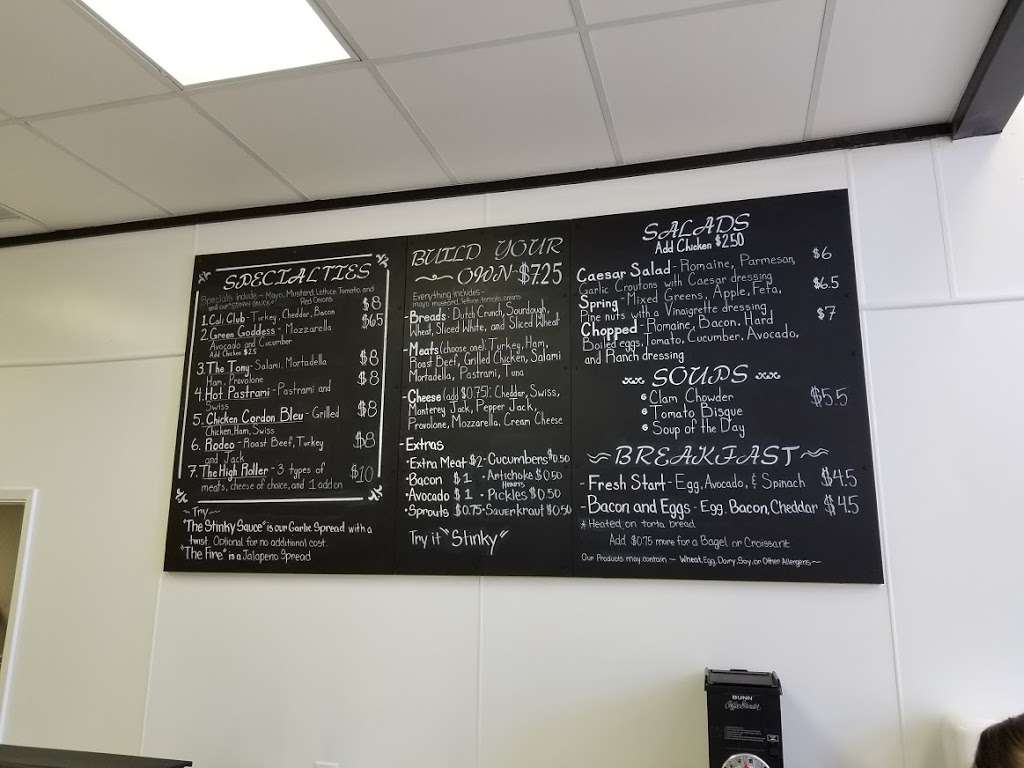 SPECIALTIES
Specials include - Mayo, Mustard, Lettuce, Tomato, and
Red Onions
1. Cali Club - Turkey, Cheddar, Bacon $8
2. Green Goddess - Mozzarella $6.5
Avocado and Cucumber
Add Chicken $2.5
3. The Tony - Salami, Mortadella $8
Ham, Provolone
4. Hot Pastrami - Pastrami and $8
Swiss
5. Chicken Cordon Bleu - Grilled $8
Chicken, Ham, Swiss
6. Rodeo - Roast Beef, Turkey $8
and Jack
7. The High Roller - 3 types of $10
meats, cheese of choice, and 1 add on
~Try~
"The Stinky Sauce" is our Garlic Spread with a
twist. Optional for no additional cost.
"The Fire" is a Jalapeno Spread
BUILD YOUR
OWN-$7.25
Everything includes -
mayo, mustard, lettuce, tomato, onions
-Breads: Dutch Crunch, Sourdough,
Wheat, Sliced White, and Sliced Wheat
-Meats (choose one): Turkey, Ham,
Roast Beef, Grilled Chicken, Salami
Mortadella, Pastrami, Tuna
-Cheese (add $0.75): Cheddar, Swiss,
Monterey Jack, Pepper Jack,
Provolone, Mozzarella, Cream Cheese
-Extras
•Extra Meat $2 •Cucumbers $0.50
•Bacon $1 •Artichoke $0.50
Hearts
•Avocado $1 •Pickles $0.50
•Sprouts $0.75 •Sauerkraut $0.50
Try it "Stinky"
SALADS
Add Chicken $2.50
Caesar Salad - Romaine, Parmesan, $6
Garlic Croutons with Caesar dressing
Spring - Mixed Greens, Apple, Feta, $6.5
Pine nuts with a Vinaigrette dressing
Chopped - Romaine, Bacon, Hard $7
Boiled eggs, Tomato, Cucumber, Avocado,
and Ranch dressing
SOUPS
Clam Chowder $5.5
Tomato Bisque
Soup of the Day
~BREAKFAST~
- Fresh Start - Egg, Avocado, & Spinach $4.5
-Bacon and Eggs - Egg, Bacon, Cheddar $4.5
* Heated on torta bread
Add $0.75 more for a Bagel or Croissant
Our Products may contain ~ Wheat, Egg, Dairy, Soy, or Other Allergens ~
BUNN